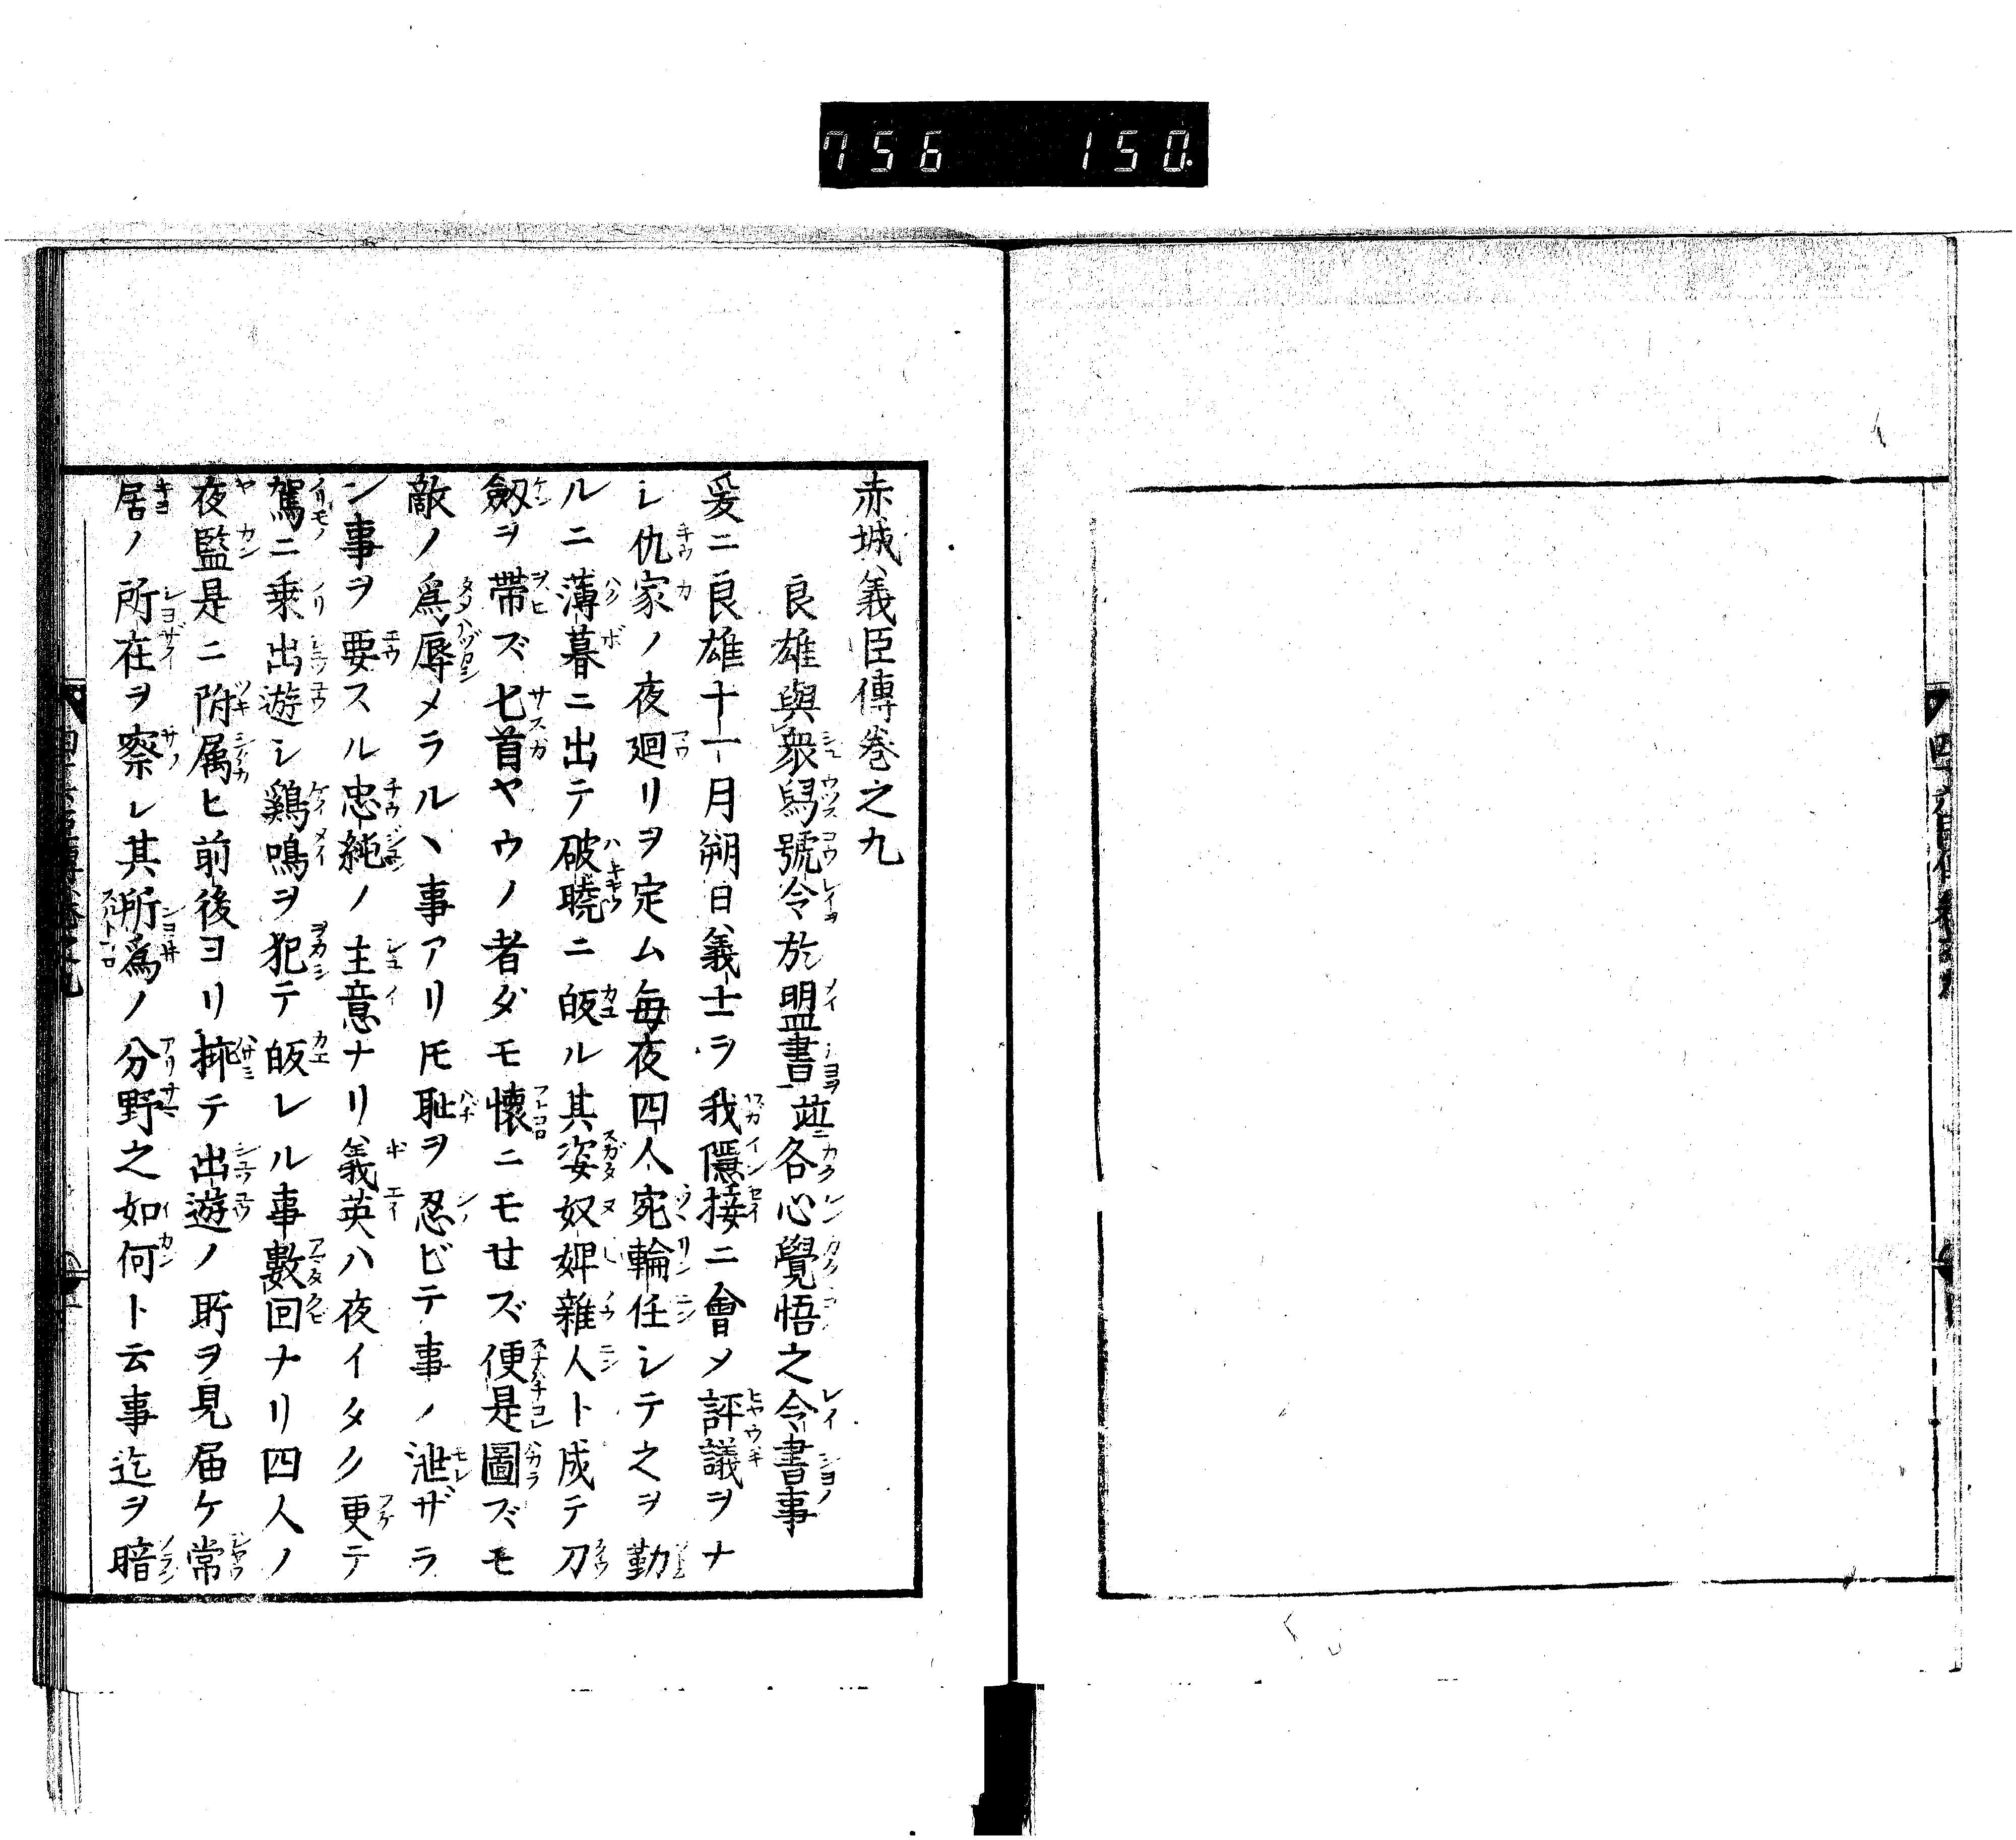 756 150.
赤城義臣傳巻之九
良雄與衆舄號令於盟書並各心覺悟之令書事
爰ニ良雄十一月朔日義士ヲ我隱接ニ會メ評議ヲナ
シ仇家ノ夜廻リヲ定ム毎夜四人宛輪任シテ之ヲ勤
ルニ薄暮ニ出テ破曉ニ皈ル其姿奴婢雜人ト成テ刀
劔ヲ帶ズ匕首ヤウノ者ダモ懷ニモせズ便是圖ズモ
敵ノ爲辱メラルヽ事アリ𪜈耻ヲ忍ビテ事ノ泄ザラ
ン事ヲ要スル忠純ノ主意ナリ義英ハ夜イタク更テ
駕ニ乗出遊シ鷄鳴ヲ犯テ皈レル事數回ナリ四人ノ
夜監是ニ附属ヒ前後ヨリ挾テ出遊ノ所ヲ見届ケ常
居ノ所在ヲ察レ其所爲ノ分野之如何ト云事迄ヲ暗